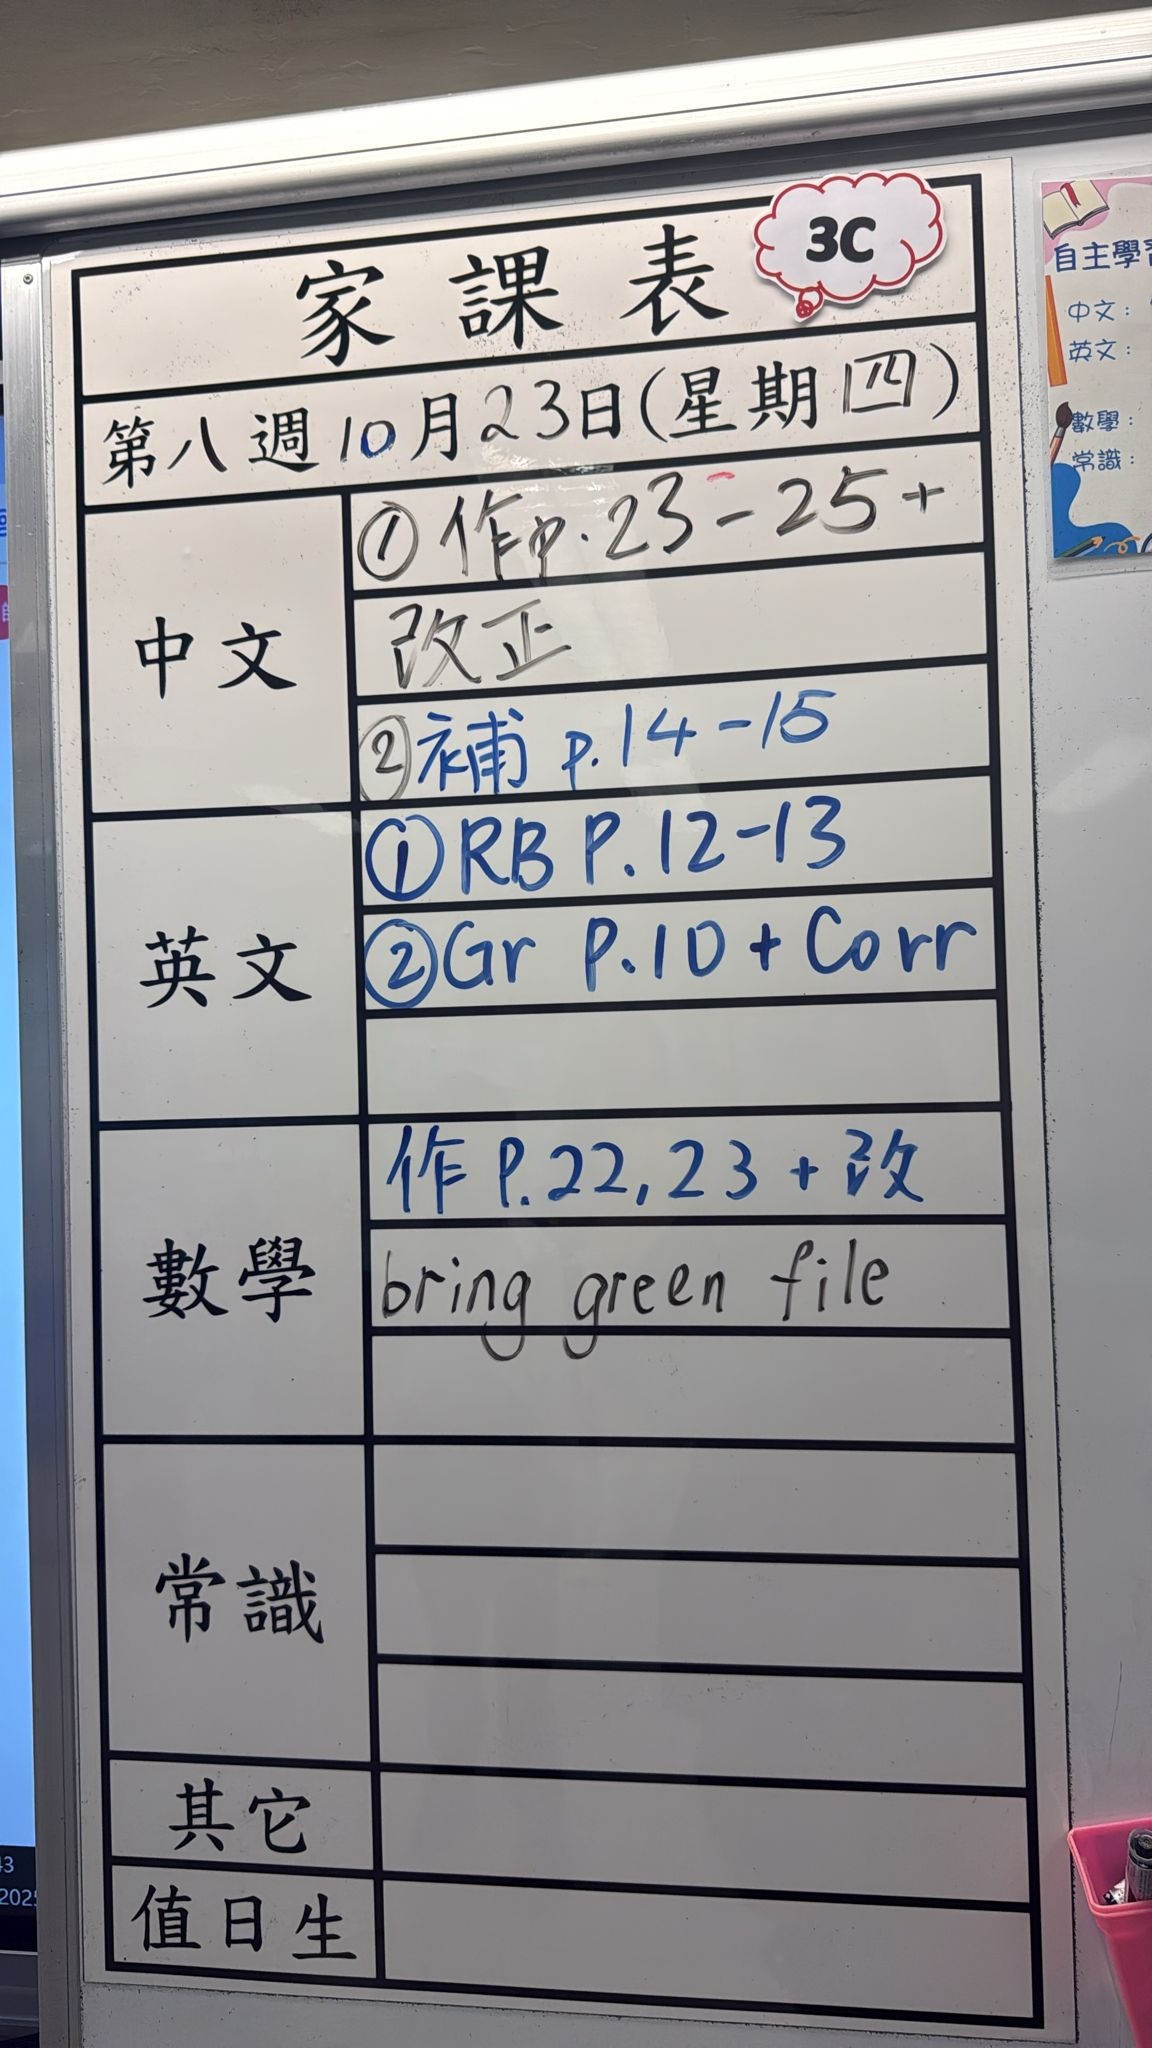 家課表
3C
第八週10月23日(星期四)
中文
①作p.23-25+
改正
②補 p.14-15
英文
①RB P.12-13
②Gr P.10 + Corr
數學
作 P.22,23 + 改
bring green file
常識
其它
值日生
自主學習
中文：
英文：
數學：
常識：